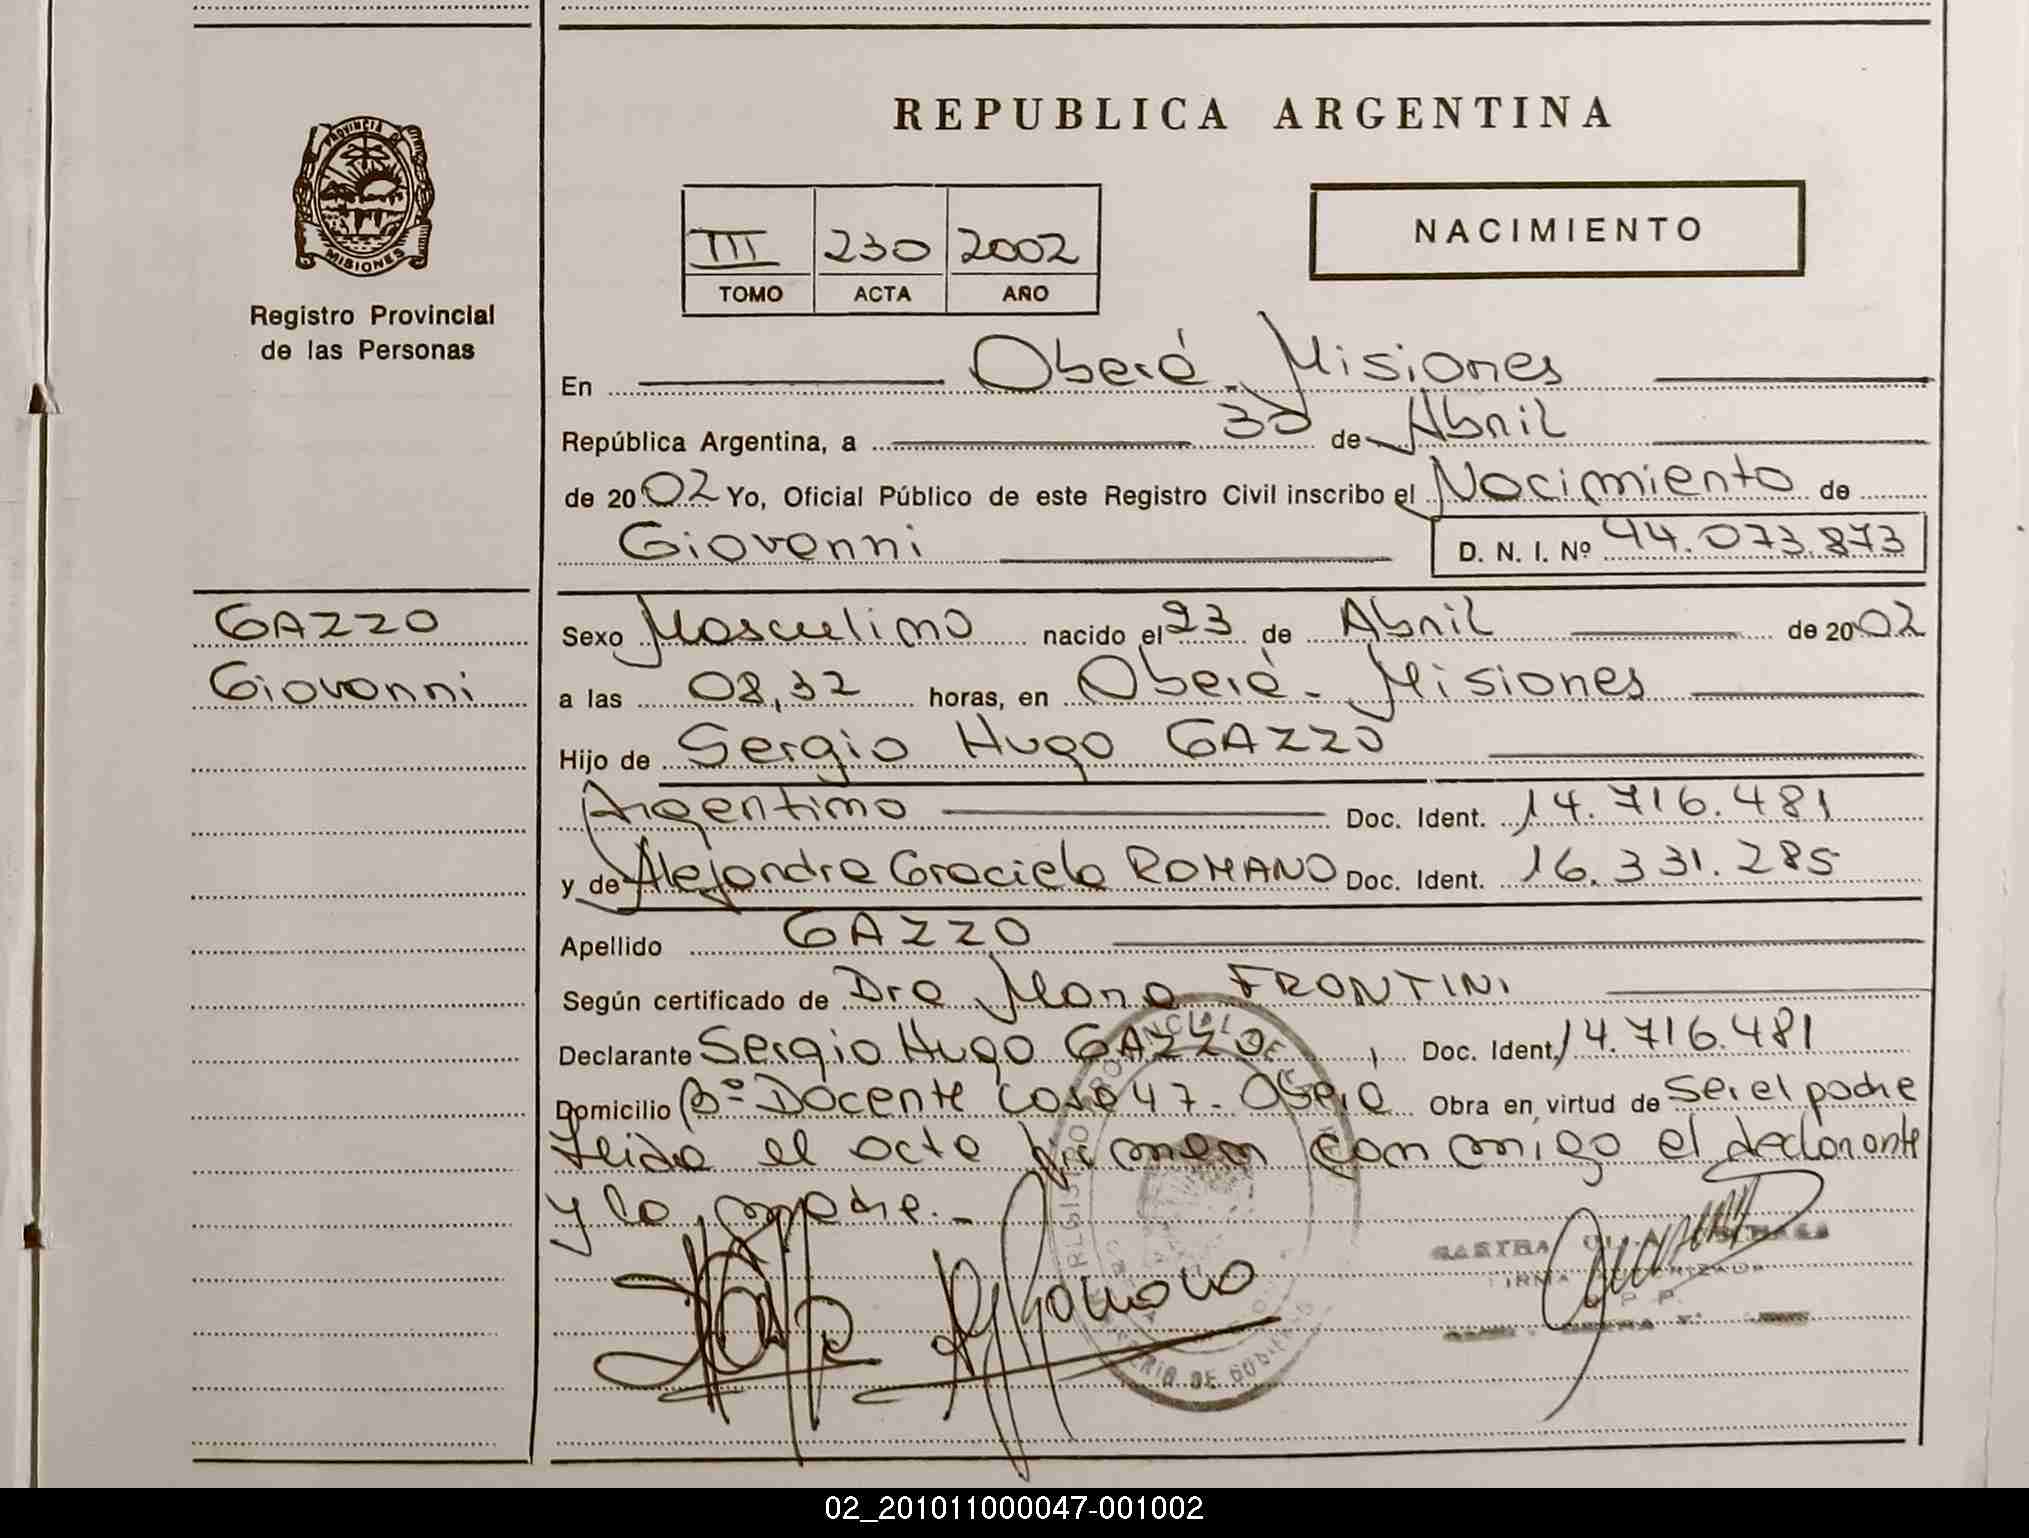 REPUBLICA ARGENTINA
PROVINCIA DE
MISIONES
Registro Provincial
de las Personas
III 230 2002
TOMO ACTA AÑO
NACIMIENTO
En Oberá - Misiones
República Argentina, a 30 de Abril
de 2002 Yo, Oficial Público de este Registro Civil inscribo el Nacimiento de
Giovanni D. N. I. Nº 44.073.873
GAZZO
Giovanni
Sexo Masculino nacido el 23 de Abril de 2002
a las 08,32 horas, en Oberá - Misiones
Hijo de Sergio Hugo GAZZO
Argentino Doc. Ident. 14.716.481
y de Alejandra Graciela ROMANO Doc. Ident. 16.331.285
Apellido GAZZO
Según certificado de Dra Maria FRONTINI
Declarante Sergio Hugo GAZZO, Doc. Ident. 14.716.481
Domicilio Bº Docente Casa 47 - Oberá Obra en virtud de ser el padre
Leida el acta firman conmigo el declarante
y la madre.-
02_201011000047-001002